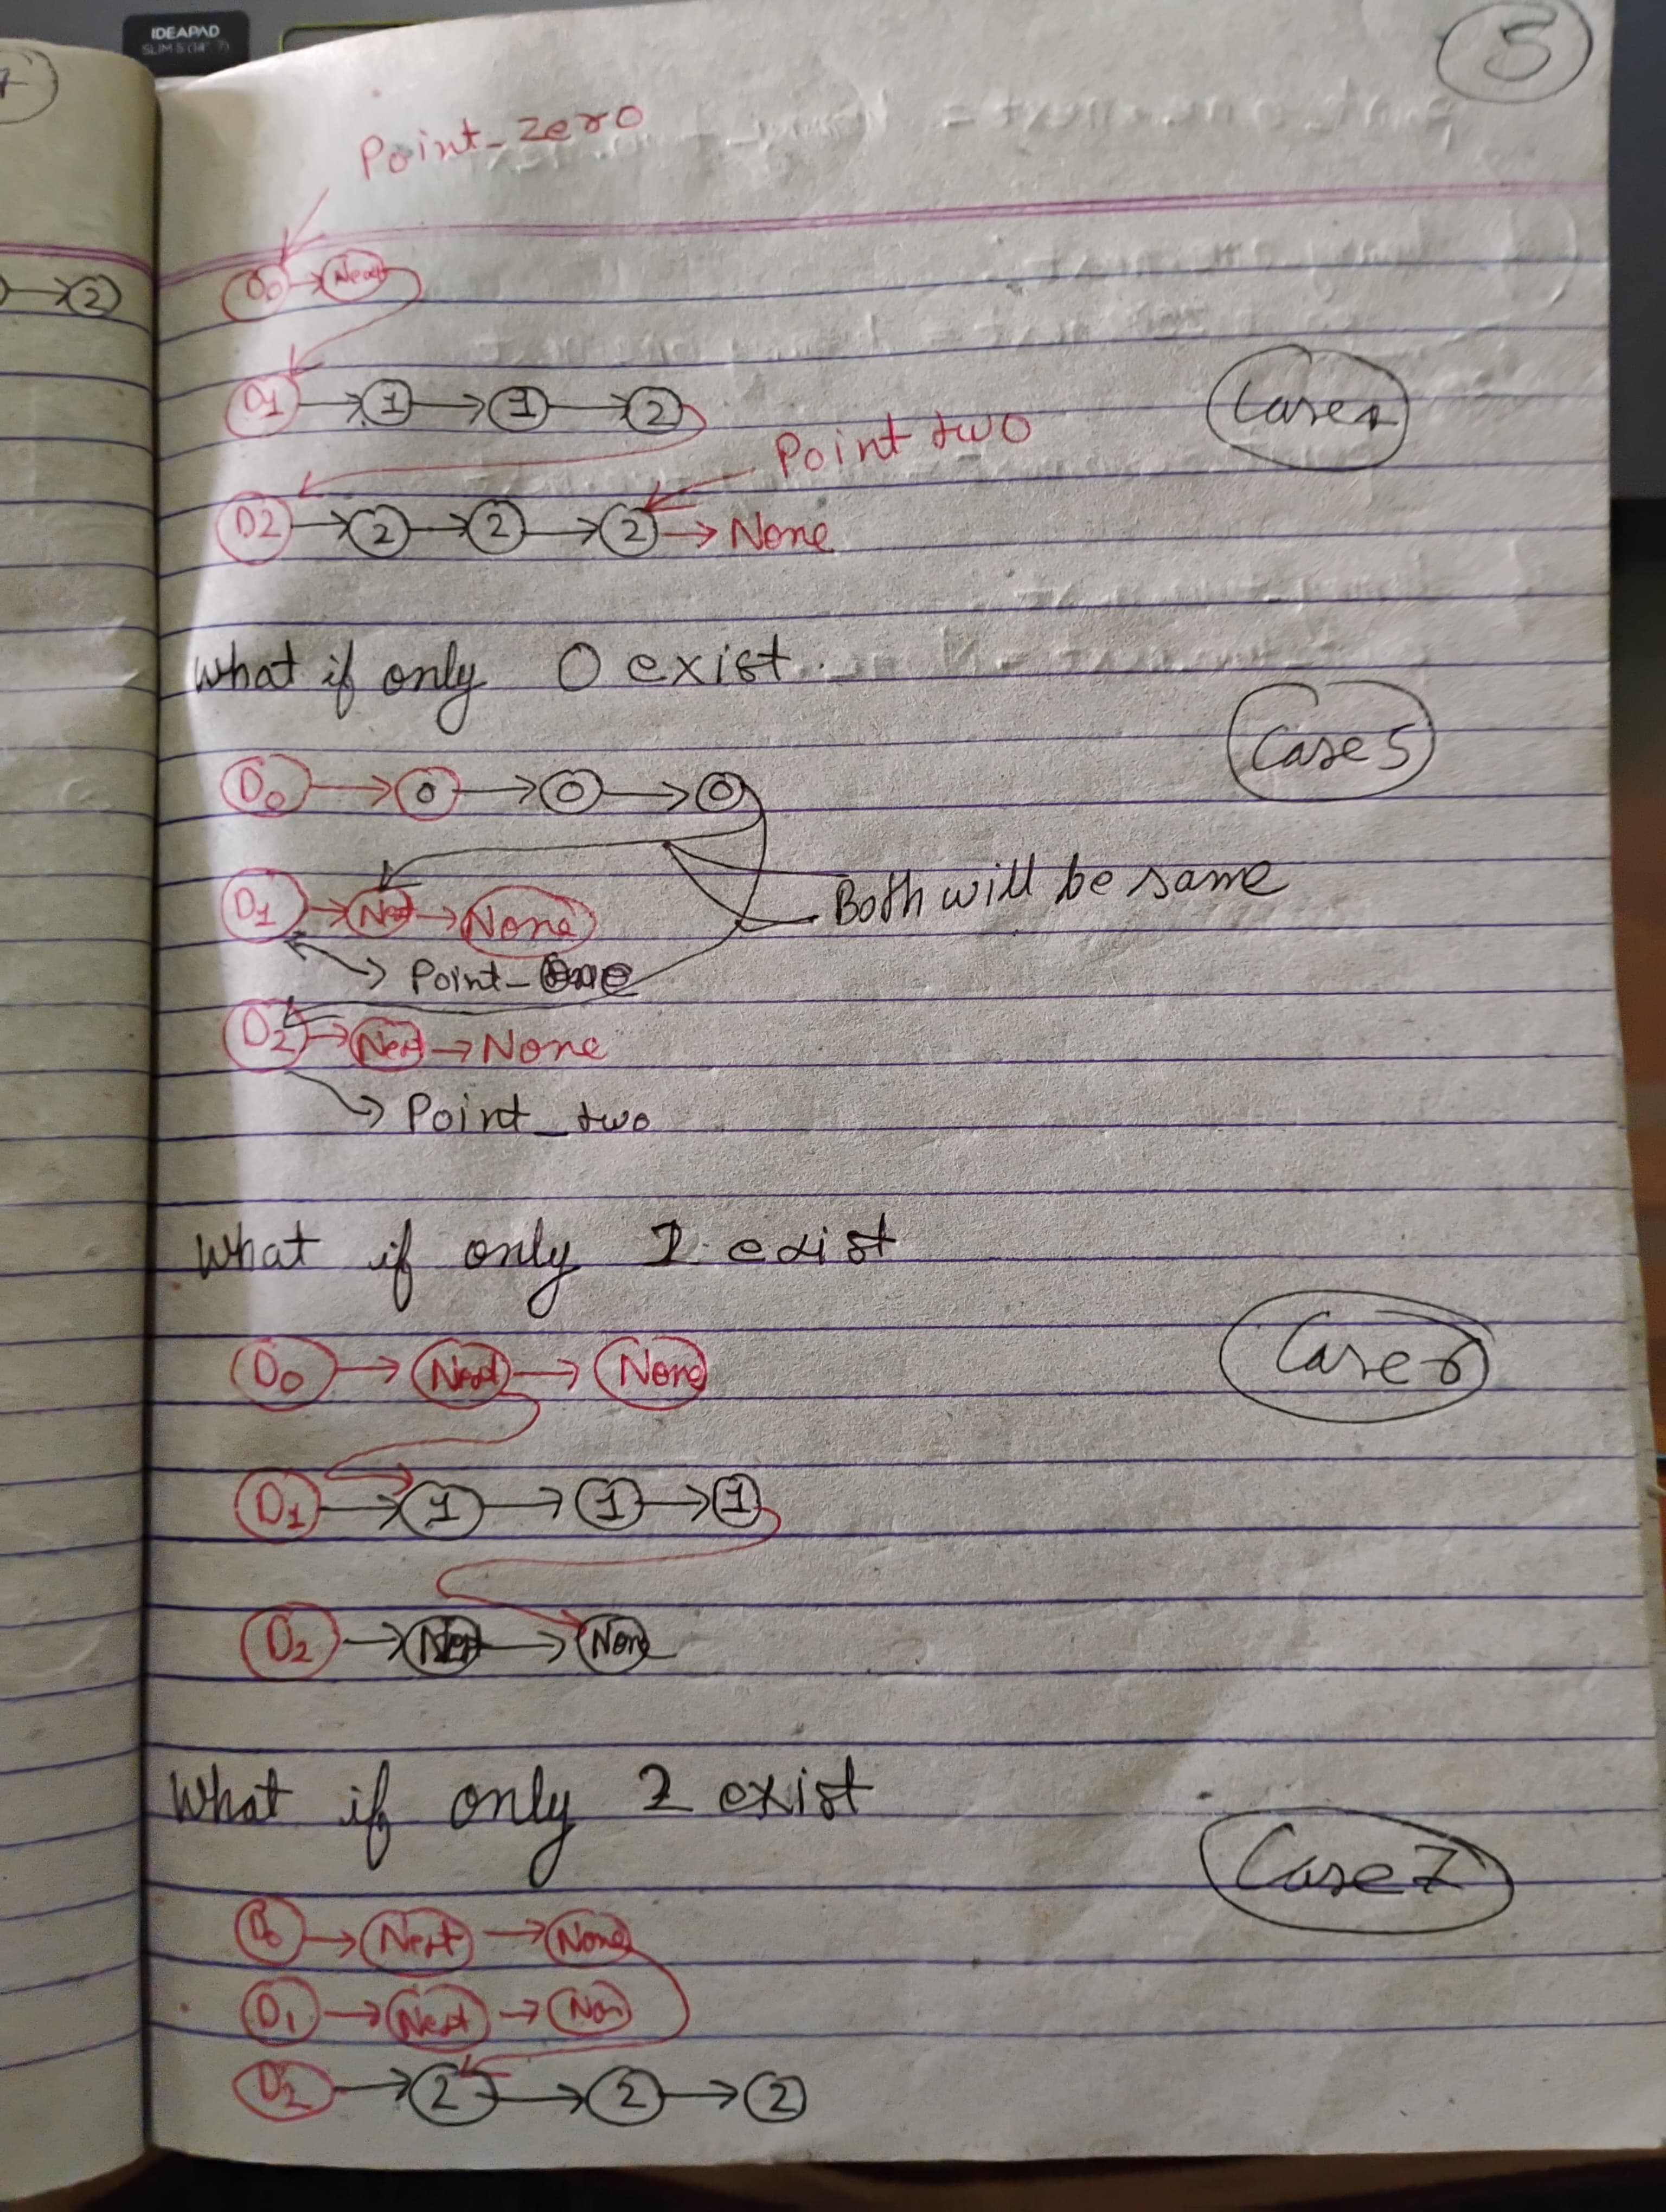 IDEAPAD
SLIM 5 (14", 7)
5
Point_zero
2
D0 Next
D1 1 1 2
Case 4
Point two
D2 2 2 2 None
What if only 0 exist
Case 5
D0 0 0 0
D1 Next None
Both will be same
Point_One
D2 Next None
Point_two
What if only 1 exist
Case 6
D0 Next None
D1 1 1 1
D2 Next None
What if only 2 exist
Case 7
D0 Next None
D1 Next Non
D2 2 2 2